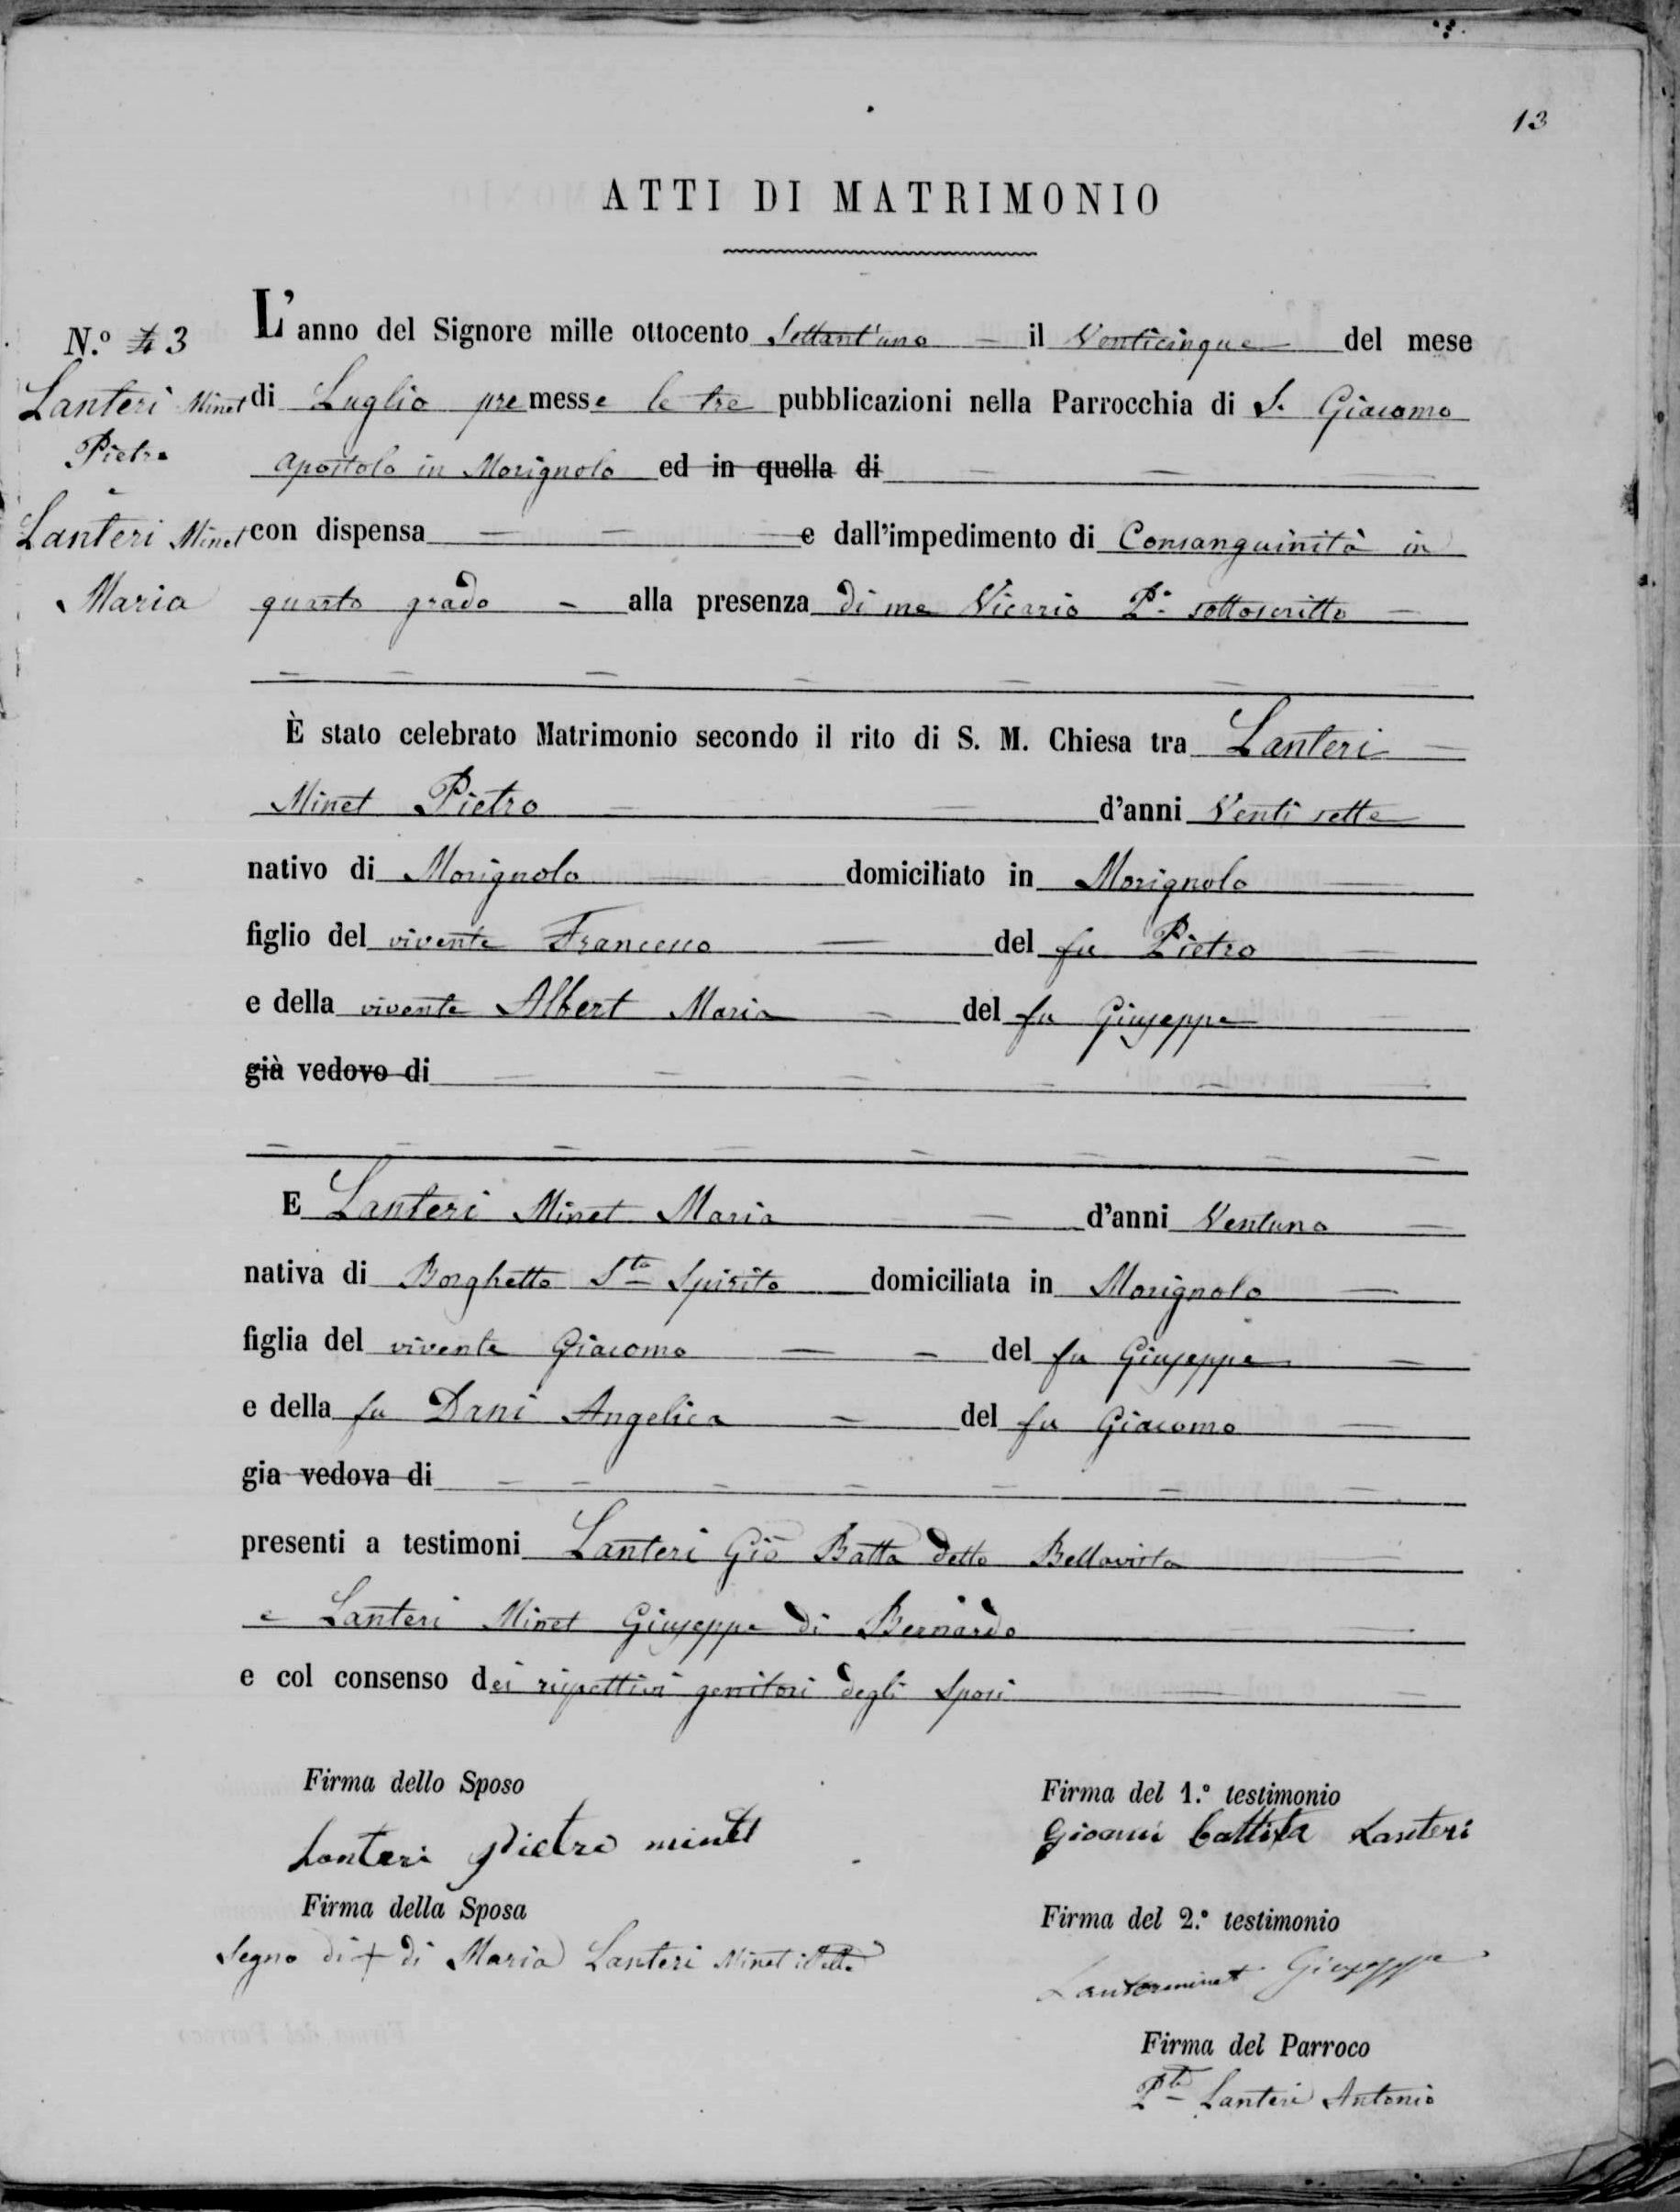 13
ATTI DI MATRIMONIO
N.º 4 3
Lanteri Minet
Pietro
e
Lanteri Minet
Maria
L'anno del Signore mille ottocento Settant'uno — il Venticinque del mese
di Luglio premesse le tre pubblicazioni nella Parrocchia di S. Giacomo
Apostolo in Morignolo ed in quella di — — —
con dispensa — — — e dall'impedimento di Consanguinità in
quarto grado – alla presenza di me Vicario P.º sottoscritto —
È stato celebrato Matrimonio secondo il rito di S. M. Chiesa tra Lanteri —
Minet Pietro — — d'anni Venti sette
nativo di Morignolo — domiciliato in Morignolo —
figlio del vivente Francesco — del fu Pietro —
e della vivente Albert Maria — del fu Giuseppe
già vedovo di — — — — — —
E Lanteri Minet Maria — — d'anni Ventuno —
nativa di Borghetto Sto Spirito domiciliata in Morignolo —
figlia del vivente Giacomo — – del fu Giuseppe —
e della fu Dani Angelica — del fu Giacomo —
gia vedova di — — — — — — —
presenti a testimoni Lanteri Gio Batta detto Bellavista —
e Lanteri Minet Giuseppe di Bernardo — —
e col consenso dei rispettivi genitori degli Sposi — —
Firma dello Sposo
Lanteri Pietro minet
Firma della Sposa
Segno di + di Maria Lanteri Minet
Firma del 1.º testimonio
Gioanni battista Lanteri
Firma del 2.º testimonio
Lanterminet Giuseppe
Firma del Parroco
Pte Lanteri Antonio